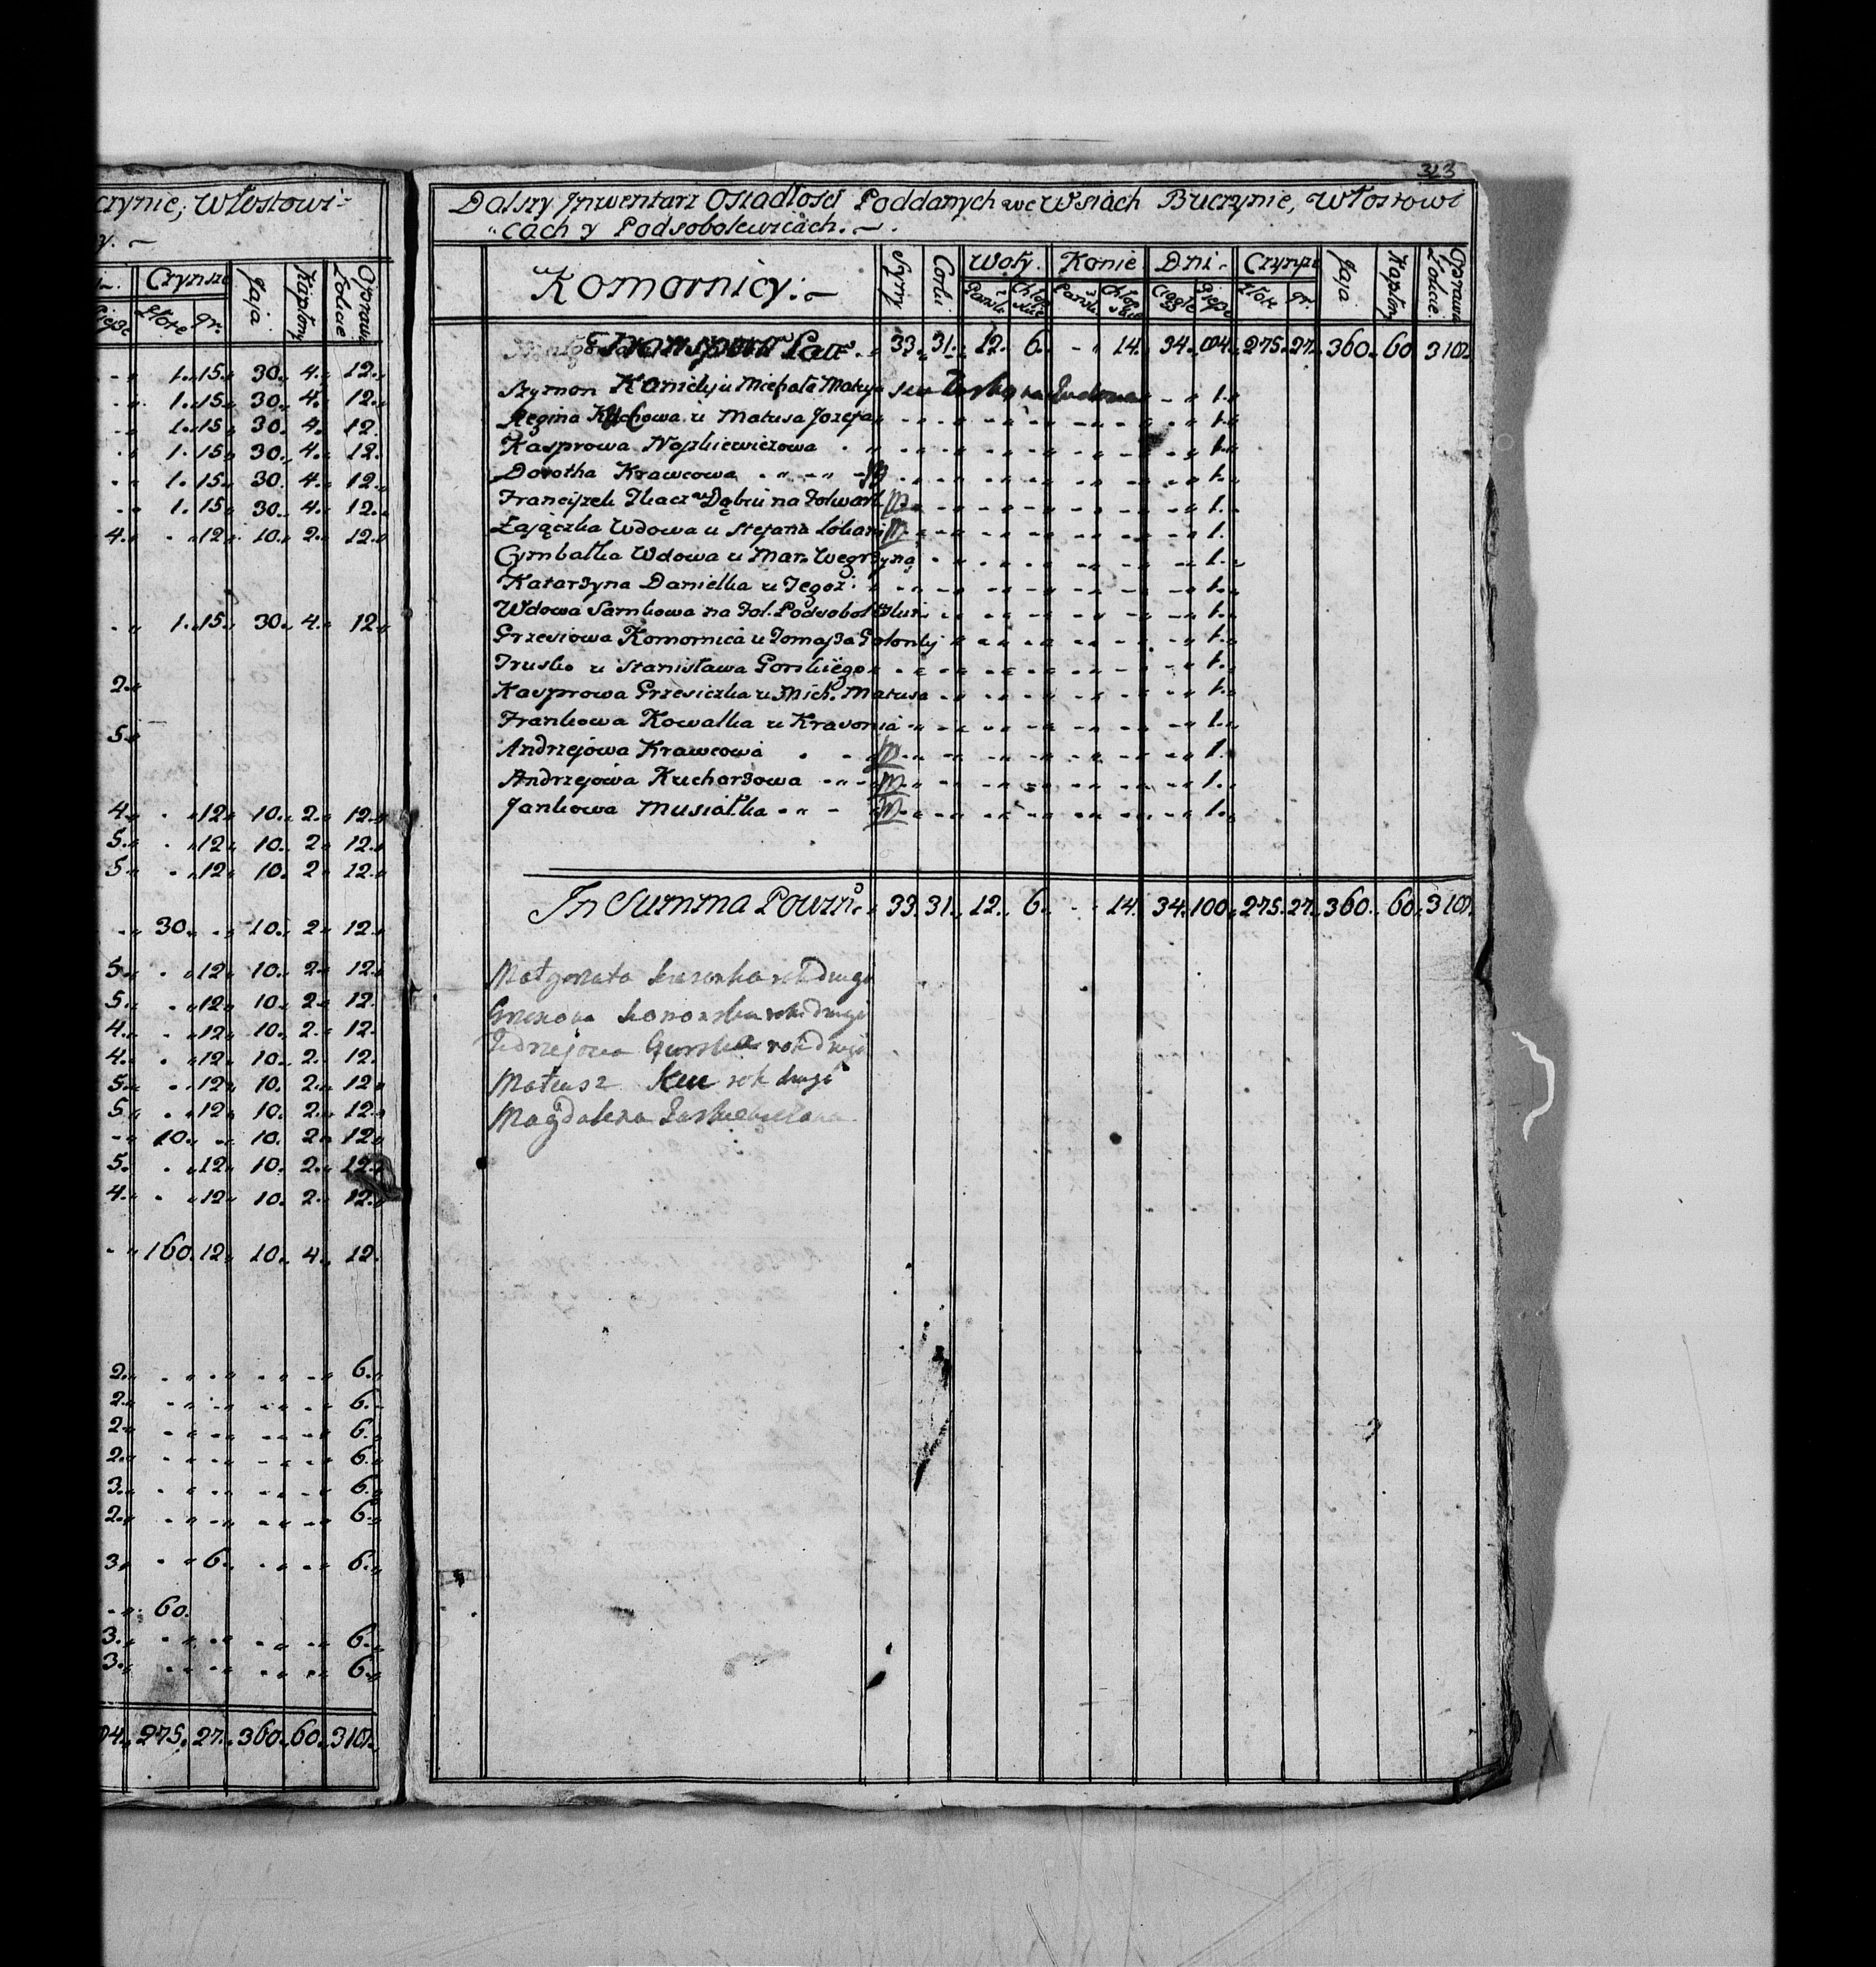 czynie, Włostowi-
y. —
Czynsze Jaja Kapłony Oprawa Łokcie
Piesze Złote gr.
1. 15. 30. 4. 12.
1. 15. 30. 4. 12.
1. 15. 30. 4. 12.
1. 15. 30. 4. 12.
1. 15. 30. 4. 12.
1. 15. 30. 4. 12.
4. 12. 10. 2. 12.
1. 15. 30. 4. 12.
2.
5.
4. 12. 10. 2. 12.
5. 12. 10. 2. 12.
5. 12. 10. 2. 12.
30. 10. 2. 12.
5. 12. 10. 2. 12.
5. 12. 10. 2. 12.
4. 12. 10. 2. 12.
4. 12. 10. 2. 12.
5. 12. 10. 2. 12.
5. 12. 10. 2. 12.
10. 10. 2. 12.
5. 12. 10. 2. 12.
4. 12. 10. 2. 12.
160. 12. 10. 4. 12.
2. 6.
2. 6.
2. 6.
2. 6.
3. 6.
2. 6.
3. 6. 6.
60.
3. 6.
3. 6.
04. 275. 27. 360. 60. 310
323
Dalszy Inwentarz Osiadłości Poddanych we Wsiach Buczynie, Włostowi
cach y Podsobolewicach. —
Komornicy: — Syny Corki Woły Konie Dni Czynsze Jaja Kapłony Oprawa Łokcie
Pańsk: Chłopskie Pańsk: Chłopskie Ciągłe Piesze Złote gr.
Transport Latt. 33. 31. 12. 6. 14. 34. 275. 27. 360. 60. 310
Szymon u Michała Matusa 1.
Regina u Matusa Jozefa 1.
Kasprowa Noszkiewiczowa 1.
Dorotha Krawcowa 1.
Franciszek Tkacz w Dąbru na Folwark 1.
Zajączka Wdowa u Stefana 1.
Cymbałka Wdowa u Mar. Węgrzyna 1.
Katarzyna Danielka u Tegoż 1.
Wdowa Sarnkowa na Fol. 1.
Grzesiowa Komornica u Tomasza 1.
Truska u Stanisława Gorskiego 1.
Kasprowa Grzesiczka u Mich. Matusa 1.
Frankowa Kowalka u 1.
Andrzejowa Krawcowa 1.
Andrzejowa Kucharzowa 1.
Jankowa Musiałka 1.
In Summa Powin: 33. 31. 12. 6. 14. 34. 100. 275. 27. 360. 60. 310
Małgorzata rok drugi
rok drugi
Jędrzejowa Gurska rok drugi
Mateusz rok drugi
Magdalena